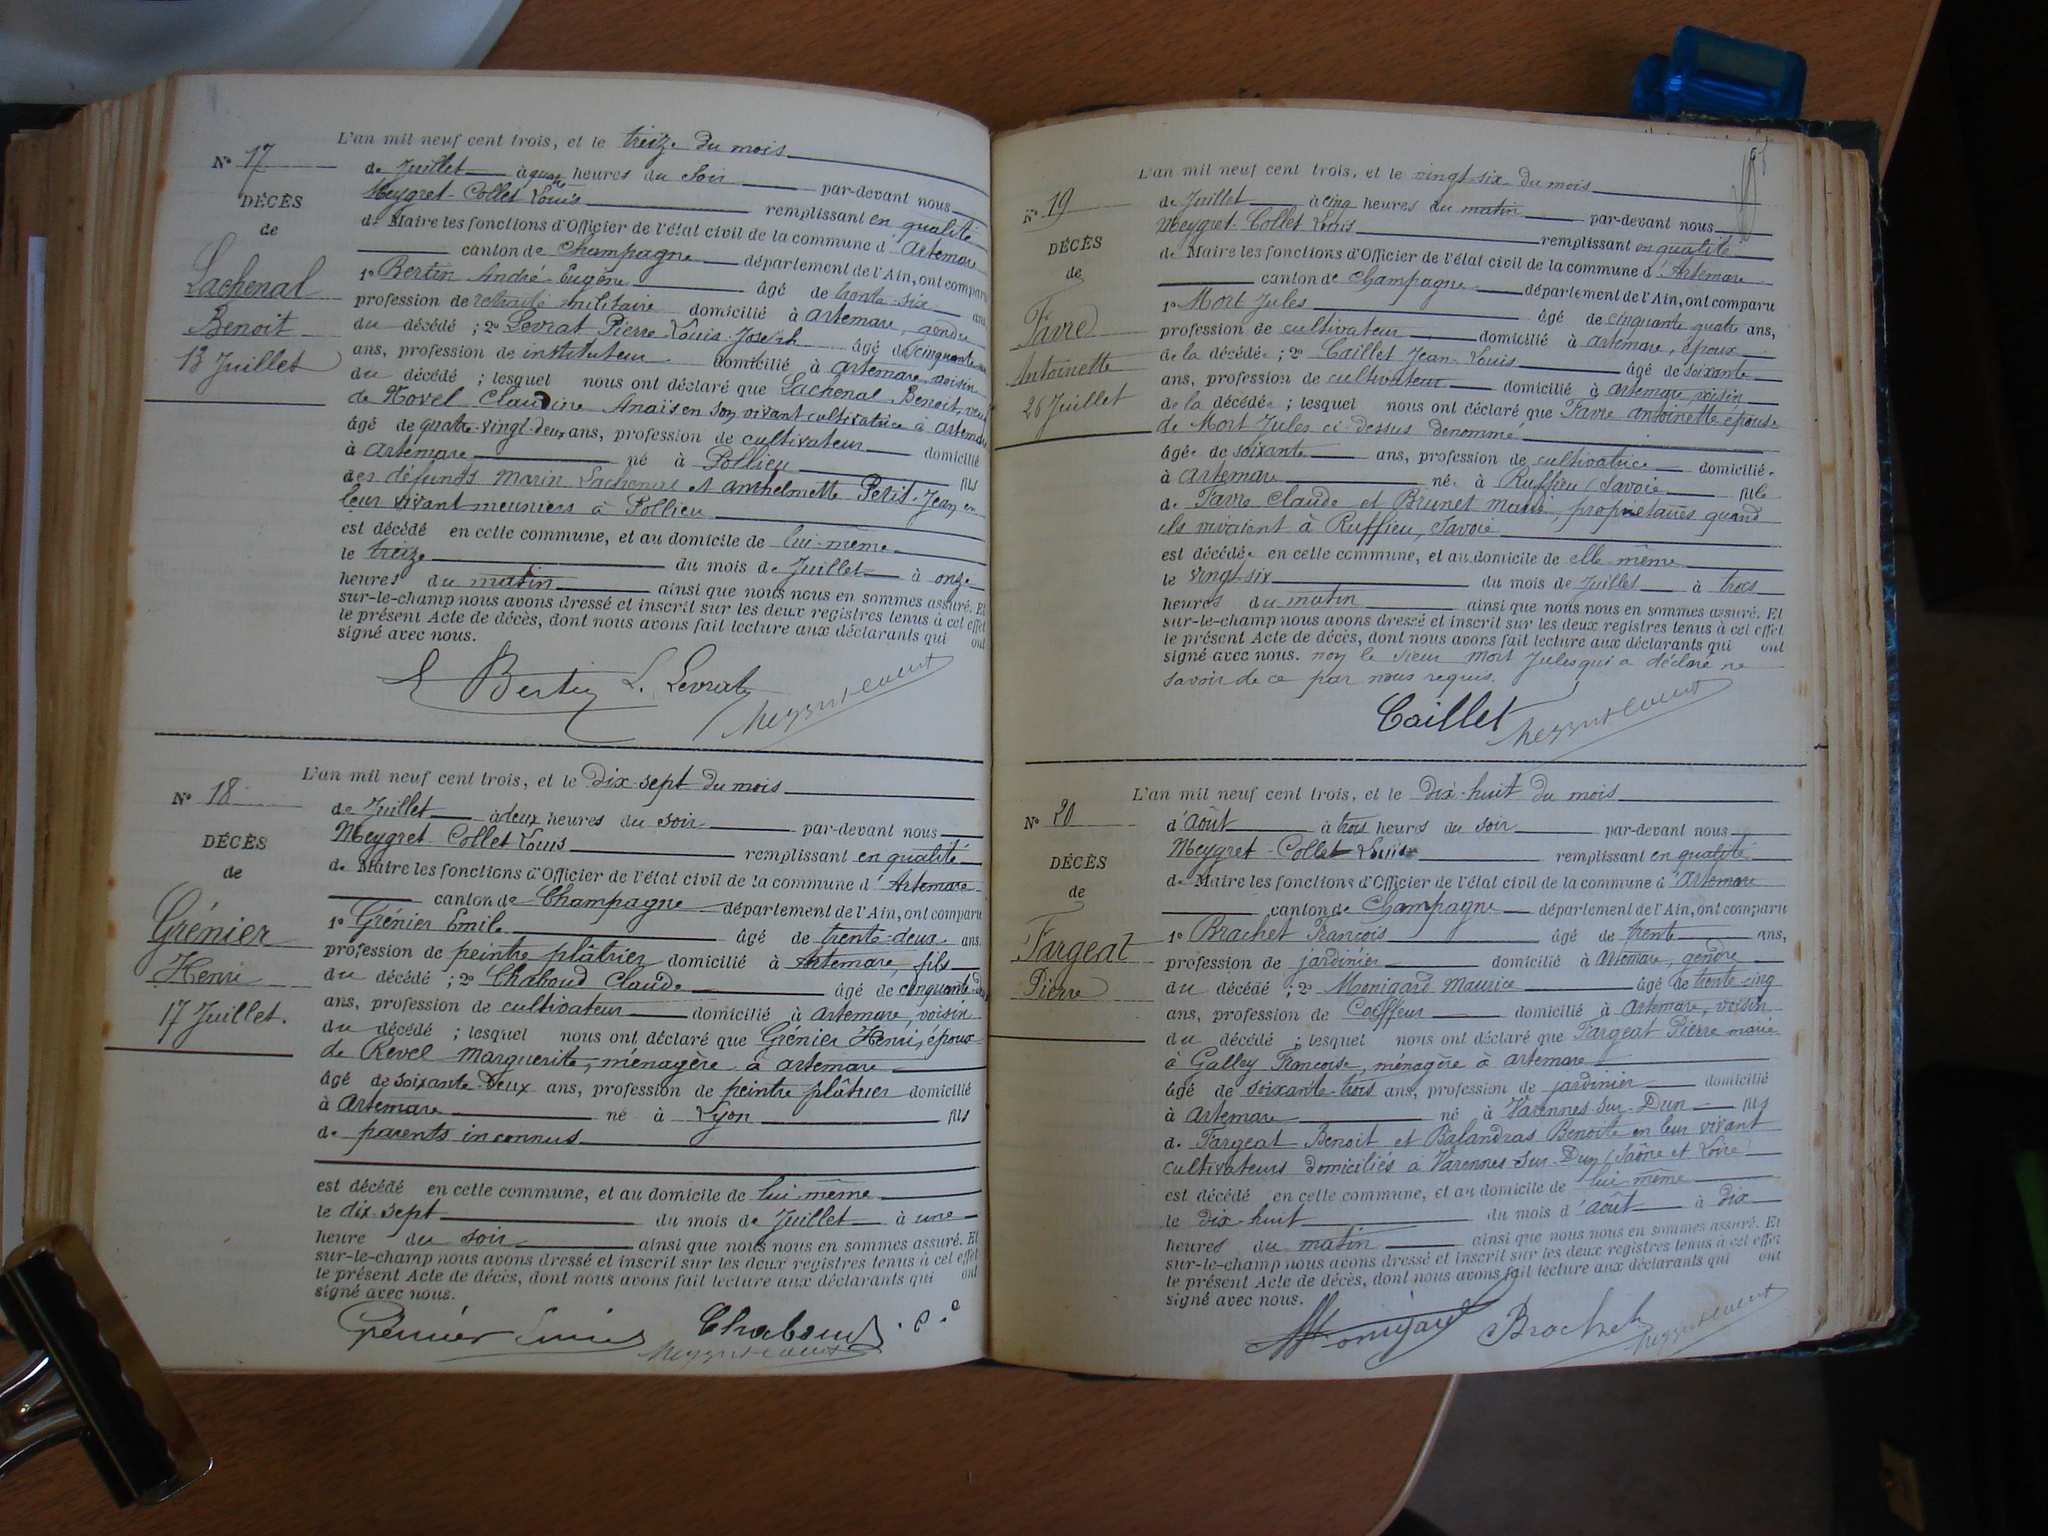 L'an mil neuf cent trois, et le treize du mois
N° 17
de Juillet à quatre heures du soir par-devant nous
Meygret-Collet Louis remplissant en qualité
DÉCÈS
de Maire les fonctions d'Officier de l'état civil de la commune d'Artemare
de
canton de Champagne département de l'Ain, ont comparu
Lachenal
1° Bertin André-Eugène âgé de trente-six ans,
Benoit
profession de retraité militaire domicilié à Artemare, gendre
13 Juillet
du décédé ; 2° Levrat Pierre Louis Joseph âgé de cinquante
ans, profession de instituteur domicilié à Artemare voisin
du décédé ; lesquel nous ont déclaré que Lachenal Benoit, veuf
de Hovel Claudine Anaïs en son vivant cultivatrice à Artemare
âgé de quatre-vingt-deux ans, profession de cultivateur domicilié
à Artemare né à Pollieu fils
des défunts Marin Lachenal et Anthelmette Petit-Jean en
leur vivant meuniers à Pollieu
est décédé en cette commune, et au domicile de lui-même
le treize du mois de Juillet à onze
heures du matin ainsi que nous nous en sommes assuré. Et
sur-le-champ nous avons dressé et inscrit sur les deux registres tenus à cet effet
le présent Acte de décès, dont nous avons fait lecture aux déclarants qui ont
signé avec nous.
E Bertin L. Levrat
Meygret-Collet
L'an mil neuf cent trois, et le dix-sept du mois
N° 18
de Juillet à deux heures du soir par-devant nous
Meygret-Collet Louis remplissant en qualité
DÉCÈS
de Maire les fonctions d'Officier de l'état civil de la commune d'Artemare
de
canton de Champagne département de l'Ain, ont comparu
Grénier
1° Grénier Emile âgé de trente-deux ans,
Henri
profession de peintre plâtrier domicilié à Artemare, fils
17 Juillet.
du décédé ; 2° Chaboud Claude âgé de cinquante-
ans, profession de cultivateur domicilié à Artemare, voisin
du décédé ; lesquel nous ont déclaré que Grénier Henri, époux
de Revel Marguerite, ménagère à Artemare
âgé de soixante-deux ans, profession de peintre plâtrier domicilié
à Artemare né à Lyon fils
de parents inconnus
est décédé en cette commune, et au domicile de lui-même
le dix-sept du mois de Juillet à une
heure du soir ainsi que nous nous en sommes assuré. Et
sur-le-champ nous avons dressé et inscrit sur les deux registres tenus à cet effet
le présent Acte de décès, dont nous avons fait lecture aux déclarants qui ont
signé avec nous.
Grénier Emile Chaboud
Meygret-Collet
L'an mil neuf cent trois, et le vingt-six du mois
N° 19
de Juillet à cinq heures du matin par-devant nous
Meygret-Collet Louis remplissant en qualité
DÉCÈS
de Maire les fonctions d'Officier de l'état civil de la commune d'Artemare
de
canton de Champagne département de l'Ain, ont comparu
Favre
1° Mort Jules âgé de cinquante quatre ans,
Antoinette
profession de cultivateur domicilié à Artemare, époux
26 Juillet
de la décédée ; 2° Caillet Jean-Louis âgé de soixante
ans, profession de cultivateur domicilié à Artemare, voisin
de la décédée ; lesquel nous ont déclaré que Favre Antoinette épouse
de Mort Jules ci-dessus dénommé
âgée de soixante ans, profession de cultivatrice domiciliée
à Artemare née à Ruffieu, Savoie fille
de Favre Claude et Brunet Marie, propriétaires quand
ils vivaient à Ruffieu, Savoie
est décédée en cette commune, et au domicile de elle même
le vingt-six du mois de Juillet à trois
heures du matin ainsi que nous nous en sommes assuré. Et
sur-le-champ nous avons dressé et inscrit sur les deux registres tenus à cet effet
le présent Acte de décès, dont nous avons fait lecture aux déclarants qui ont
signé avec nous. non le sieur Mort Jules qui a déclaré ne
savoir de ce par nous requis.
Caillet Meygret-Collet
L'an mil neuf cent trois, et le dix-huit du mois
N° 20
d'Août à trois heures du soir par-devant nous
Meygret-Collet Louis remplissant en qualité
DÉCÈS
de Maire les fonctions d'Officier de l'état civil de la commune d'Artemare
de
canton de Champagne département de l'Ain, ont comparu
Fargeat
1° Brachet François âgé de trente ans,
Pierre
profession de jardinier domicilié à Artemare, gendre
du décédé ; 2° Monigard Maurice âgé de trente-cinq
ans, profession de Coiffeur domicilié à Artemare, voisin
du décédé ; lesquel nous ont déclaré que Fargeat Pierre marié
à Galley Françoise, ménagère à Artemare
âgé de soixante-trois ans, profession de jardinier domicilié
à Artemare né à Varennes-sur-Dun fils
de Fargeat Benoit et Balandras Benoite en leur vivant
cultivateurs domiciliés à Varennes-sur-Dun (Saône et Loire)
est décédé en cette commune, et au domicile de lui même
le dix-huit du mois d'août à dix
heures du matin ainsi que nous nous en sommes assuré. Et
sur-le-champ nous avons dressé et inscrit sur les deux registres tenus à cet effet
le présent Acte de décès, dont nous avons fait lecture aux déclarants qui ont
signé avec nous.
Monigard Brachet
Meygret-Collet